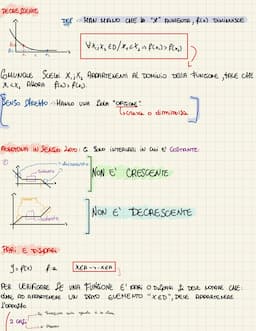 DECRESCENTE
DEF → MAN MANO CHE LA "X" AUMENTA, f(x) DIMINUISCE
∀ x₁, x₂ ∈ D / x₁ < x₂ ⇒ f(x₁) > f(x₂)
COMUNQUE SCELGI X₁, X₂ APPARTENENTI AL DOMINIO DELLA FUNZIONE, TALE CHE
X₁ < X₂ ALLORA f(x₁) > f(x₂).
SENSO STRETTO → HANNO UNA SOLA "OPZIONE"
cresce o diminuisce
MONOTONA IN SENSO LATO: CI SONO INTERVALLI IN CUI E' COSTANTE:
costante
NON E' CRESCENTE
costante
NON E' DECRESCENTE
PARI E DISPARI
y = f(x)
x∈A → -x∈A
PER VERIFICARE SE UNA FUNZIONE E' PARI O DISPARI SI DEVE NOTARE CHE:
OLTRE AD APPARTENERE UN DATO ELEMENTO "X∈D", DEVE APPARTENERE
L'OPPOSTO
2 CASI